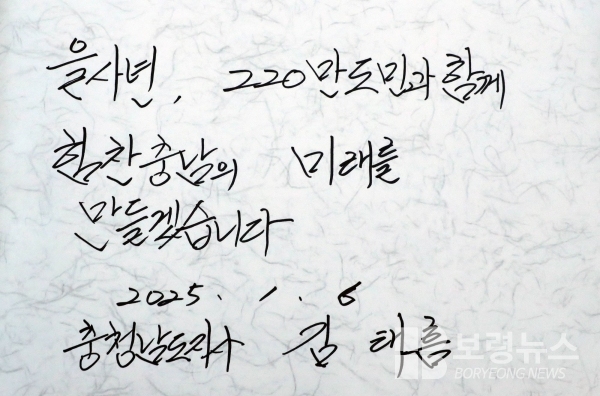 을사년, 220만도민과 함께
힘찬충남의 미래를
만들겠습니다
2025. 1. 6
충청남도지사 김 태흠
보령뉴스
BORYEONG NEWS